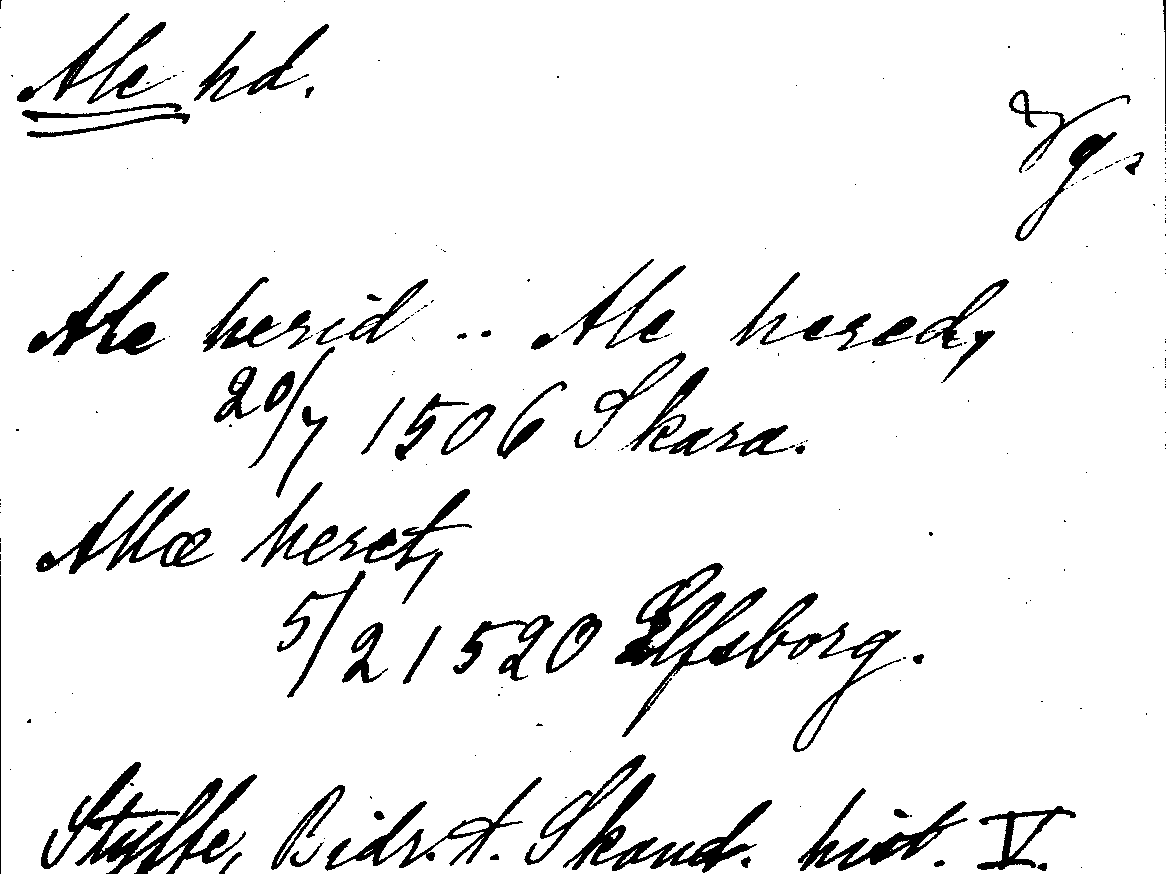 Ale hd.
Vg.
Ale herid .. Ale hered,
20/7 1506 Skara.
Allæ heret,
5/2 1520 Elfsborg.
Styffe, Bidr. t. Skand. hist. V.